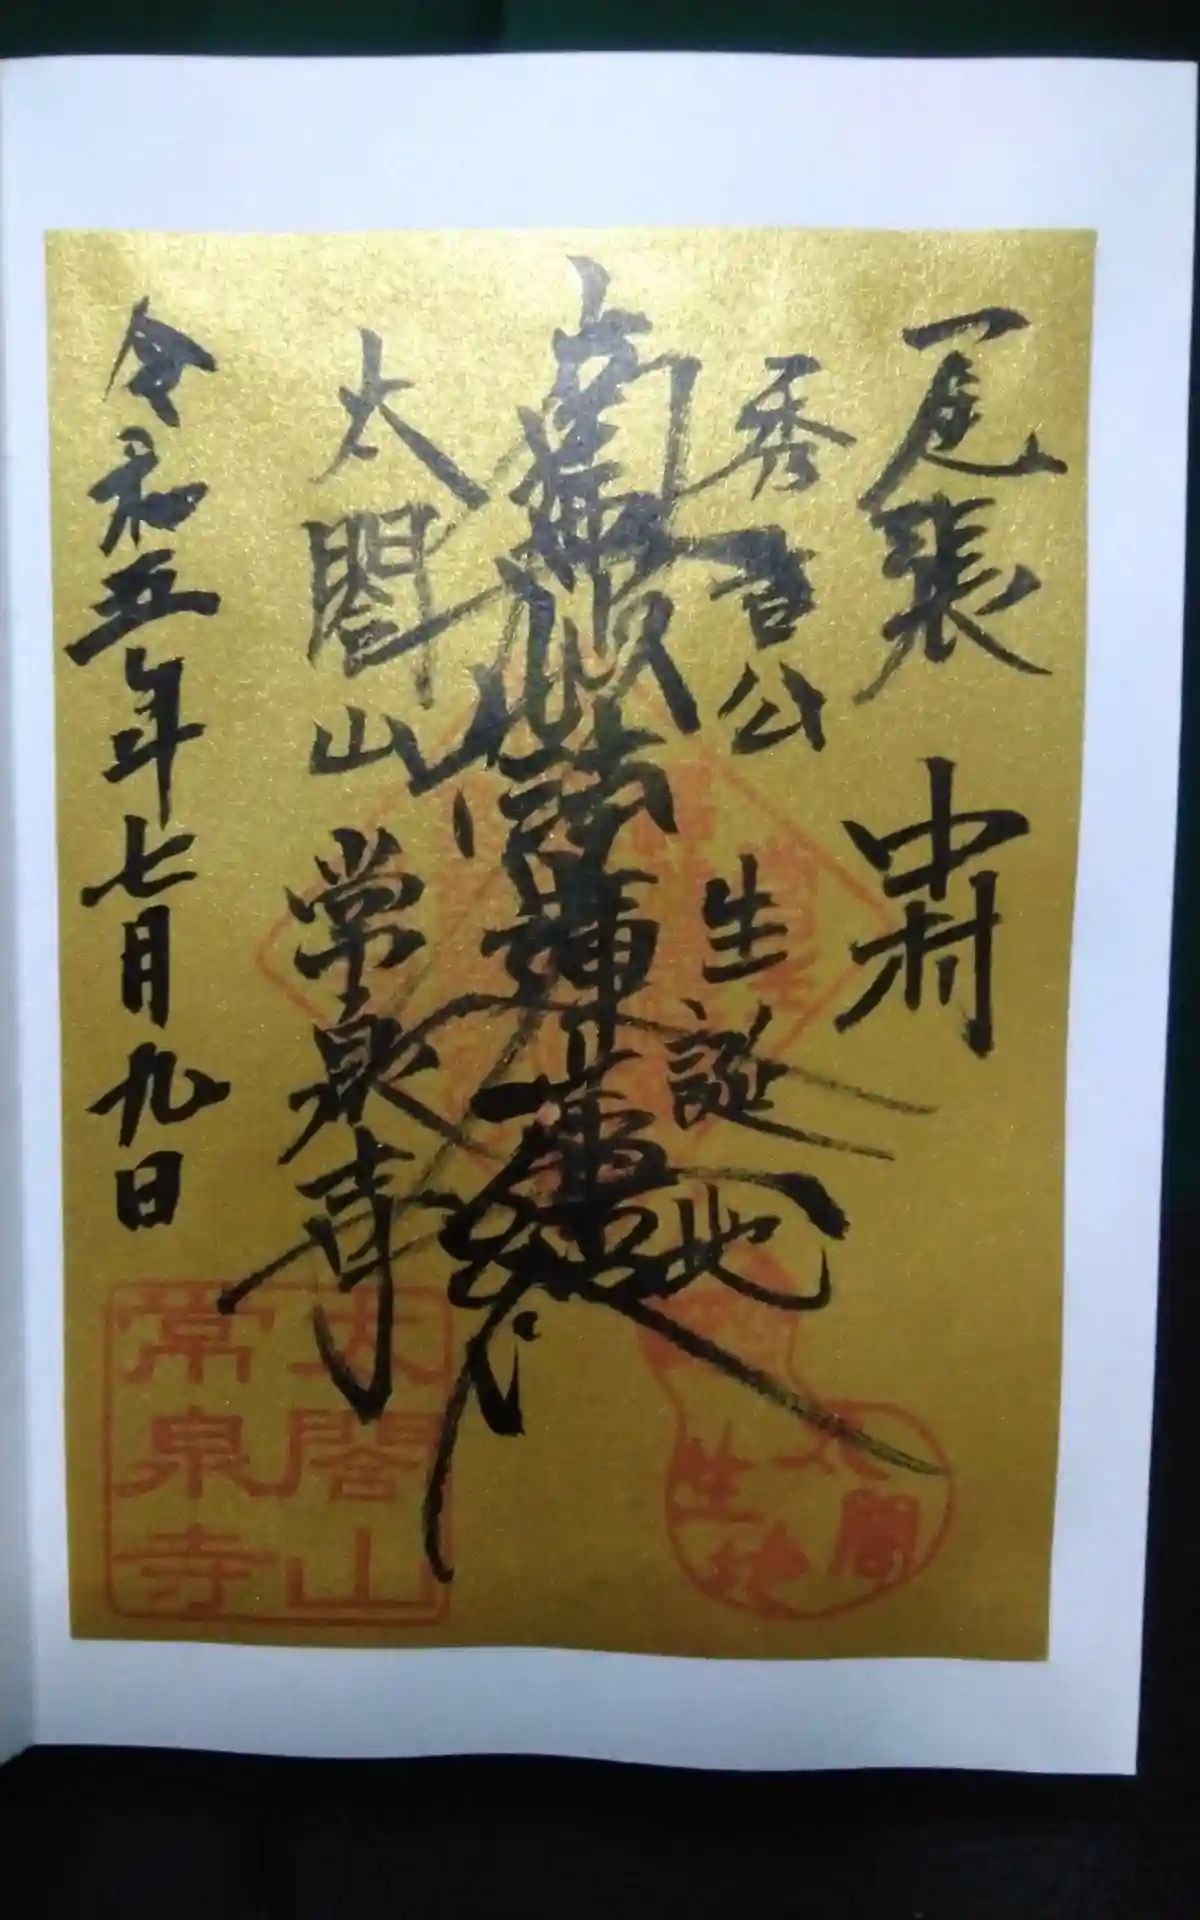 尾張 中村
秀吉公 生誕地
南無妙法蓮華経
太閤山 常泉寺
令和五年七月九日
太閤山
常泉寺
太閤
生地